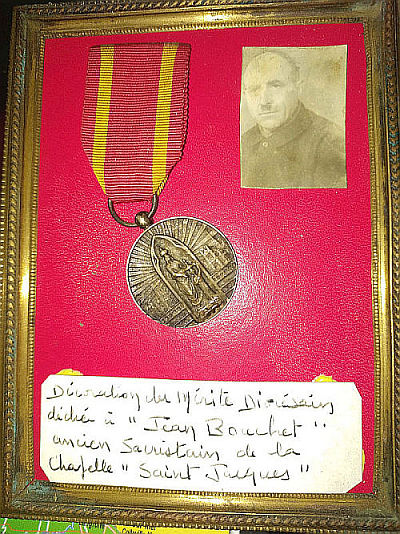 Décoration du Mérite Diocésain
dédiée à "Jean Bouchet"
ancien Sacristain de la
Chapelle "Saint Jacques"